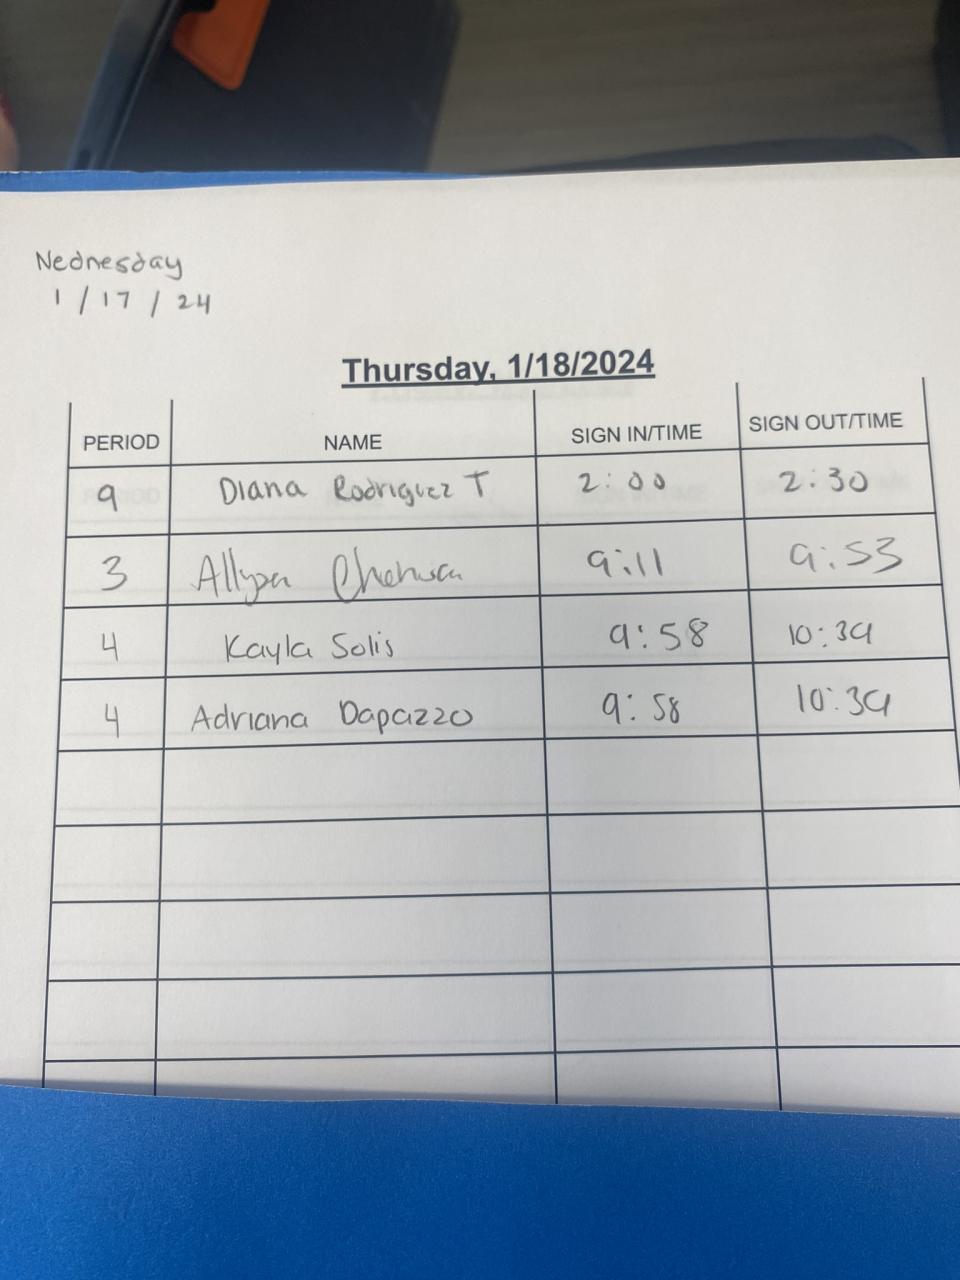 Wednesday
1 / 17 / 24
Thursday, 1/18/2024
PERIOD NAME SIGN IN/TIME SIGN OUT/TIME
9 Diana Rodriguez T 2:00 2:30
3 9:11 9:53
4 Kayla Solis 9:58 10:39
4 Adriana Dapazzo 9:58 10:39